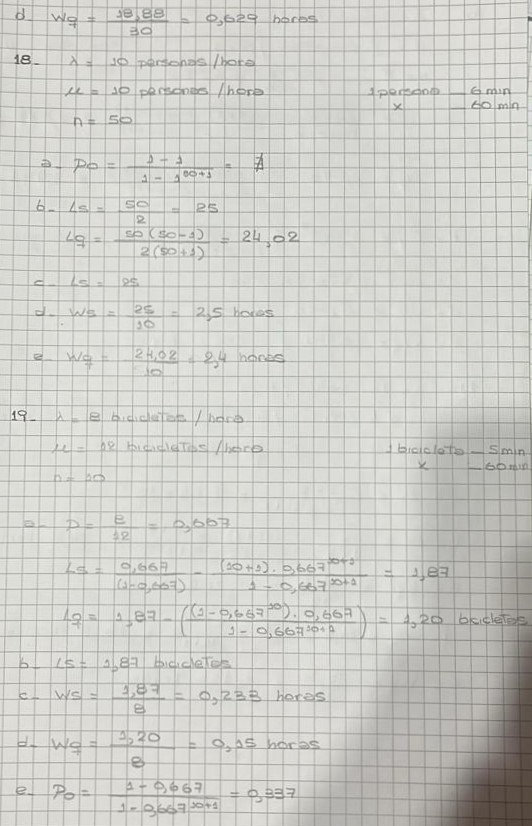 d. Wq = 18,88 / 30 = 0,629 horas
18- λ = 10 personas /hora
μ = 10 personas /hora 1 persona — 6 min
n = 50 x — 60 min
a- Po = 1 - 1 / 1 - 1^50+1 = ∄
b- Ls = 50 / 2 = 25
Lq = 50 (50-1) / 2 (50+1) = 24,02
c- Ls = 25
d- Ws = 25 / 10 = 2,5 horas
e- Wq = 24,02 / 10 = 2,4 horas
19- λ = 8 bicicletas / hora
μ = 12 bicicletas /hora 1 bicicleta — 5 min
n = 10 x — 60 min
a- D = 8 / 12 = 0,667
Ls = 0,667 / (1-0,667) - (10+1) . 0,667^10+1 / 1 - 0,667^10+1 = 1,87
Lq = 1,87 - ((1-0,667^10) . 0,667 / 1 - 0,667^10+1) = 1,20 bicicletas
b- Ls = 1,87 bicicletas
c- Ws = 1,87 / 8 = 0,233 horas
d- Wq = 1,20 / 8 = 0,15 horas
e- Po = 1 - 0,667 / 1 - 0,667^10+1 = 0,337